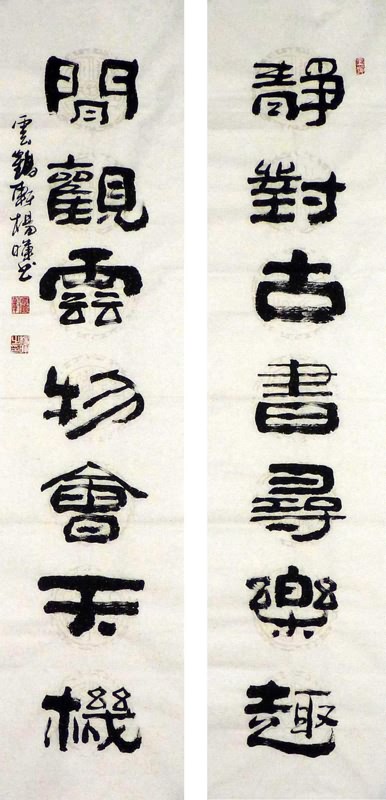 靜對古書尋樂趣
閒觀雲物會天機
雲鶴軒楊暉书